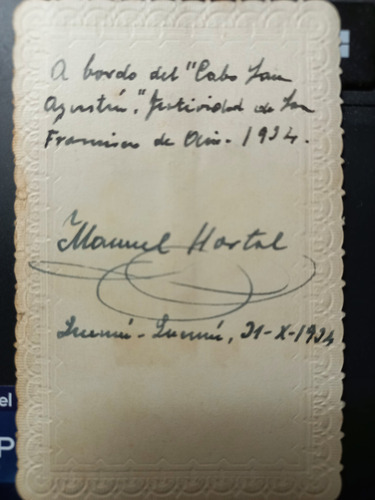 A bordo del "Cabo San
Agustín", festividad de San
Francisco de Asis - 1934.
Manuel Hortal
31-X-1934
el
P